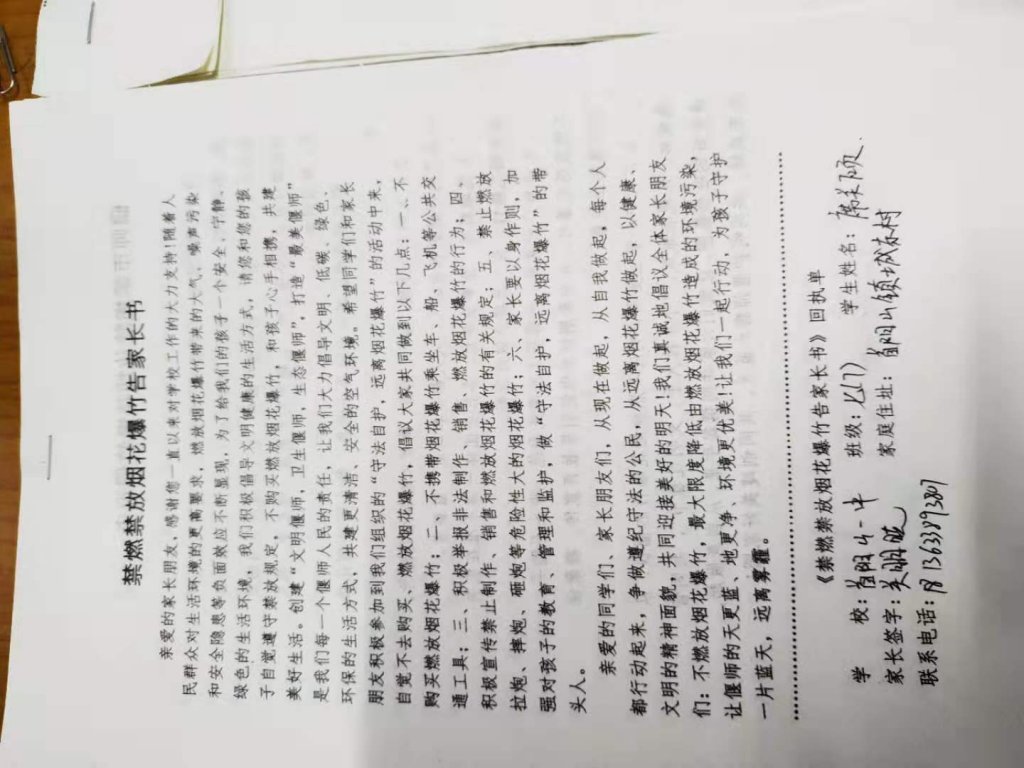 禁燃禁放烟花爆竹告家长书
亲爱的家长朋友，感谢您一直以来对学校工作的大力支持！随着人
民群众对生活环境的更高要求，燃放烟花爆竹带来的大气、噪声污染
和安全隐患等负面效应不断显现，为了给我们的孩子一个安全、宁静、
绿色的生活环境，我们积极倡导文明健康的生活方式，请您和您的孩
子自觉遵守禁放规定，不购买燃放烟花爆竹，和孩子心手相携，共建
美好生活。创建“文明偃师，卫生偃师，生态偃师”，打造“最美偃师”
是我们每一个偃师人民的责任，让我们大力倡导文明、低碳、绿色、
环保的生活方式，共建更清洁、安全的空气环境。希望同学们和家长
朋友积极参加到我们组织的“守法自护，远离烟花爆竹”的活动中来，
自觉不去购买、燃放烟花爆竹，倡议大家共同做到以下几点：一、不
购买燃放烟花爆竹；二、不携带烟花爆竹乘坐车、船、飞机等公共交
通工具；三、积极举报非法制作、销售、燃放烟花爆竹的行为；四、
积极宣传禁止制作、销售和燃放烟花爆竹的有关规定；五、禁止燃放
拉炮、摔炮、砸炮等危险性大的烟花爆竹；六、家长要以身作则，加
强对孩子的教育、管理和监护，做“守法自护，远离烟花爆竹”的带
头人。
亲爱的同学们、家长朋友们，从现在做起，从自我做起，每个人
都行动起来，争做遵纪守法的公民，从远离烟花爆竹做起，以健康、
文明的精神面貌，共同迎接美好的明天！我们真诚地倡议全体家长朋友
们：不燃放烟花爆竹，最大限度降低由燃放烟花爆竹造成的环境污染，
让偃师的天更蓝、地更净、环境更优美！让我们一起行动，为孩子守护
一片蓝天，远离雾霾。
《禁燃禁放烟花爆竹告家长书》回执单
学 校：首阳山一中 班级： 学生姓名：
家长签字： 家庭住址：首阳山镇
联系电话：13633893807